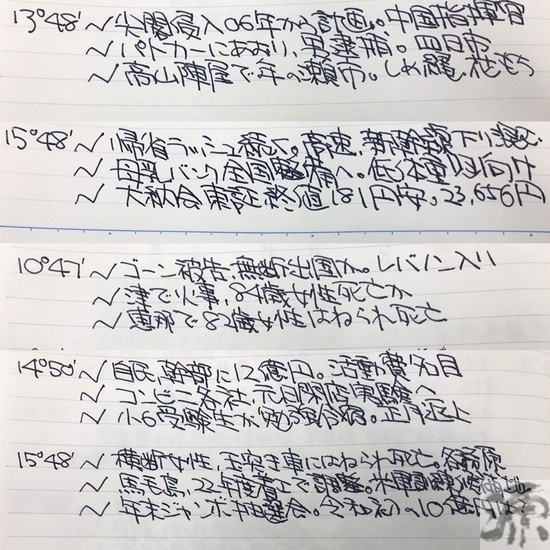 13°48′〜尖閣侵入06年から計画。中国指揮官
〜パトカーにあおり、男逮捕。四日市
〜高山陣屋で年の瀬市。しめ縄、花もち
15°48′〜帰省ラッシュ続く。高速、新幹線下り混む
〜母乳バンク全国整備へ。低体重児向け
〜大納会東証終値181円安。23,656円
10°47′〜ゴーン被告、無断出国か。レバノン入り
〜津で火事、84歳女性死亡か
〜恵那で82歳女性はねられ死亡
14°50′〜自民、幹部に12億円。活動費名目
〜コンビニ各社、元旦閉店実験へ
〜小6受験生が勉強合宿。正月返上
15°48′〜横断女性、に車にはねられ死亡。各務原
〜馬毛島、22年度着工で調整。米軍訓練
〜年末ジャンボ抽選会。令和初の10億円